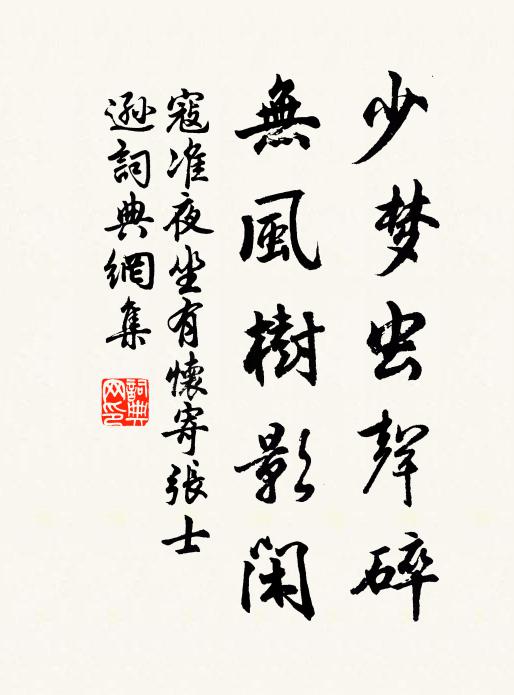 少梦虫聲碎
無風樹影閑
寇准夜坐有懷寄張士
遜詞典網集
詞典網印